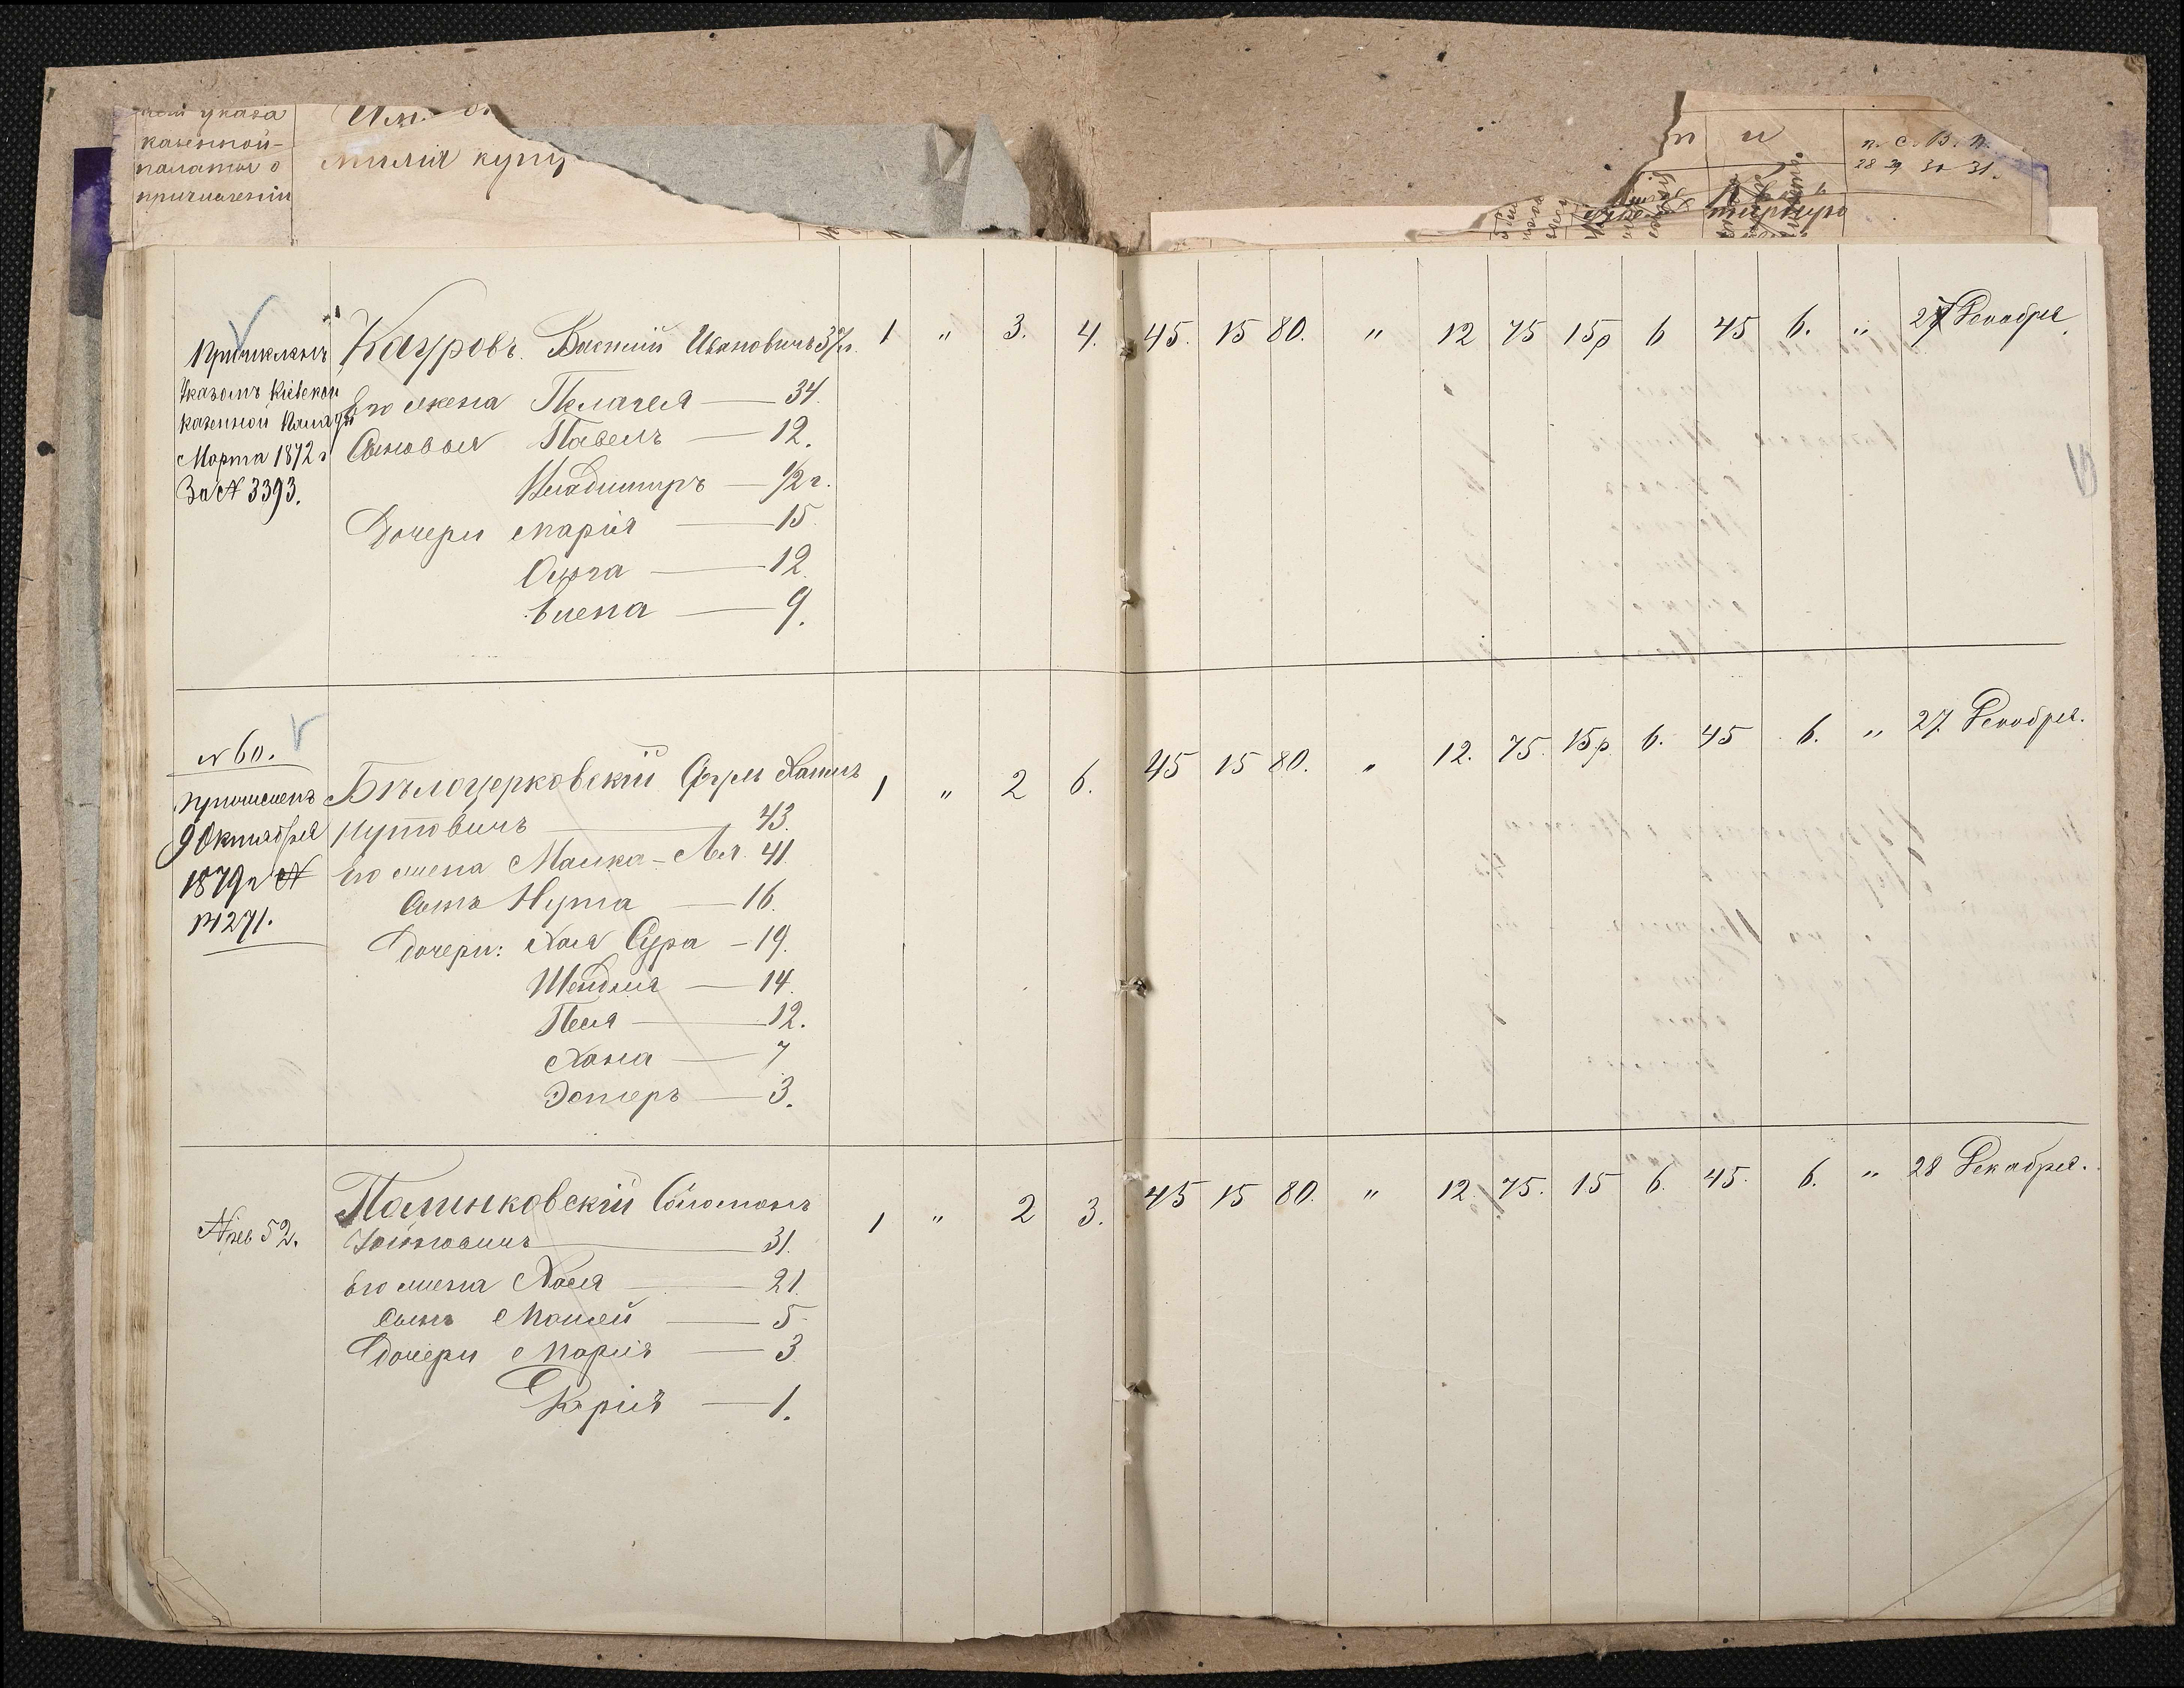 указа
казенной
палаты о
причислении
купц
п и
п. с. в. п.
28 29 30 31.
Причисленъ
Указомъ Кіевской
казенной Палаты
Марта 1872 г
За № 3393.
Кауровъ Василий Ивановичъ 37 л. 1 " 3. 4. 45. 15 80. " 12 75 15р 6 45 6. " 27 Декабря
Его жена Пелагея — 34
Сыновья Павелъ — 12.
Владимиръ — 1/2 г.
Дочери Марія — 15
Ольга — 12
Елена — 9.
№ 60.
Причисленъ
9 Октября
1879 г №
14271.
Бѣлоцерковскій Сруль Хаимъ 1 " 2 6. 45 15 80. " 12. 75. 15р 6. 45 6. " 27. Декабря.
Нутовичъ — 43.
Его жена Малка-Лея 41.
Сынъ Нута — 16.
Дочери: Хая Сура — 19.
Шейдля — 14.
Песя — 12.
Хана — 7
Эстеръ — 3.
№ рев 52.
Палинковскій Соломонъ 1 " 2 3. 45 15 80. " 12. 75. 15 6. 45. 6. " 28 Декабря.
31.
Его жена Хая — 21.
Сынъ Моисей — 5
Дочери Марія — 3
— 1.